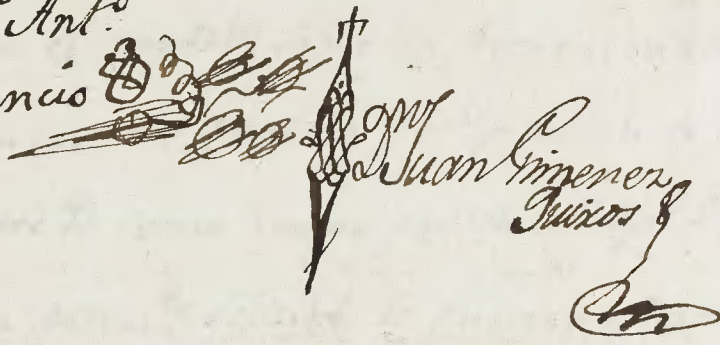 Ant.º
ncio
Juan Gimenez
Quixos